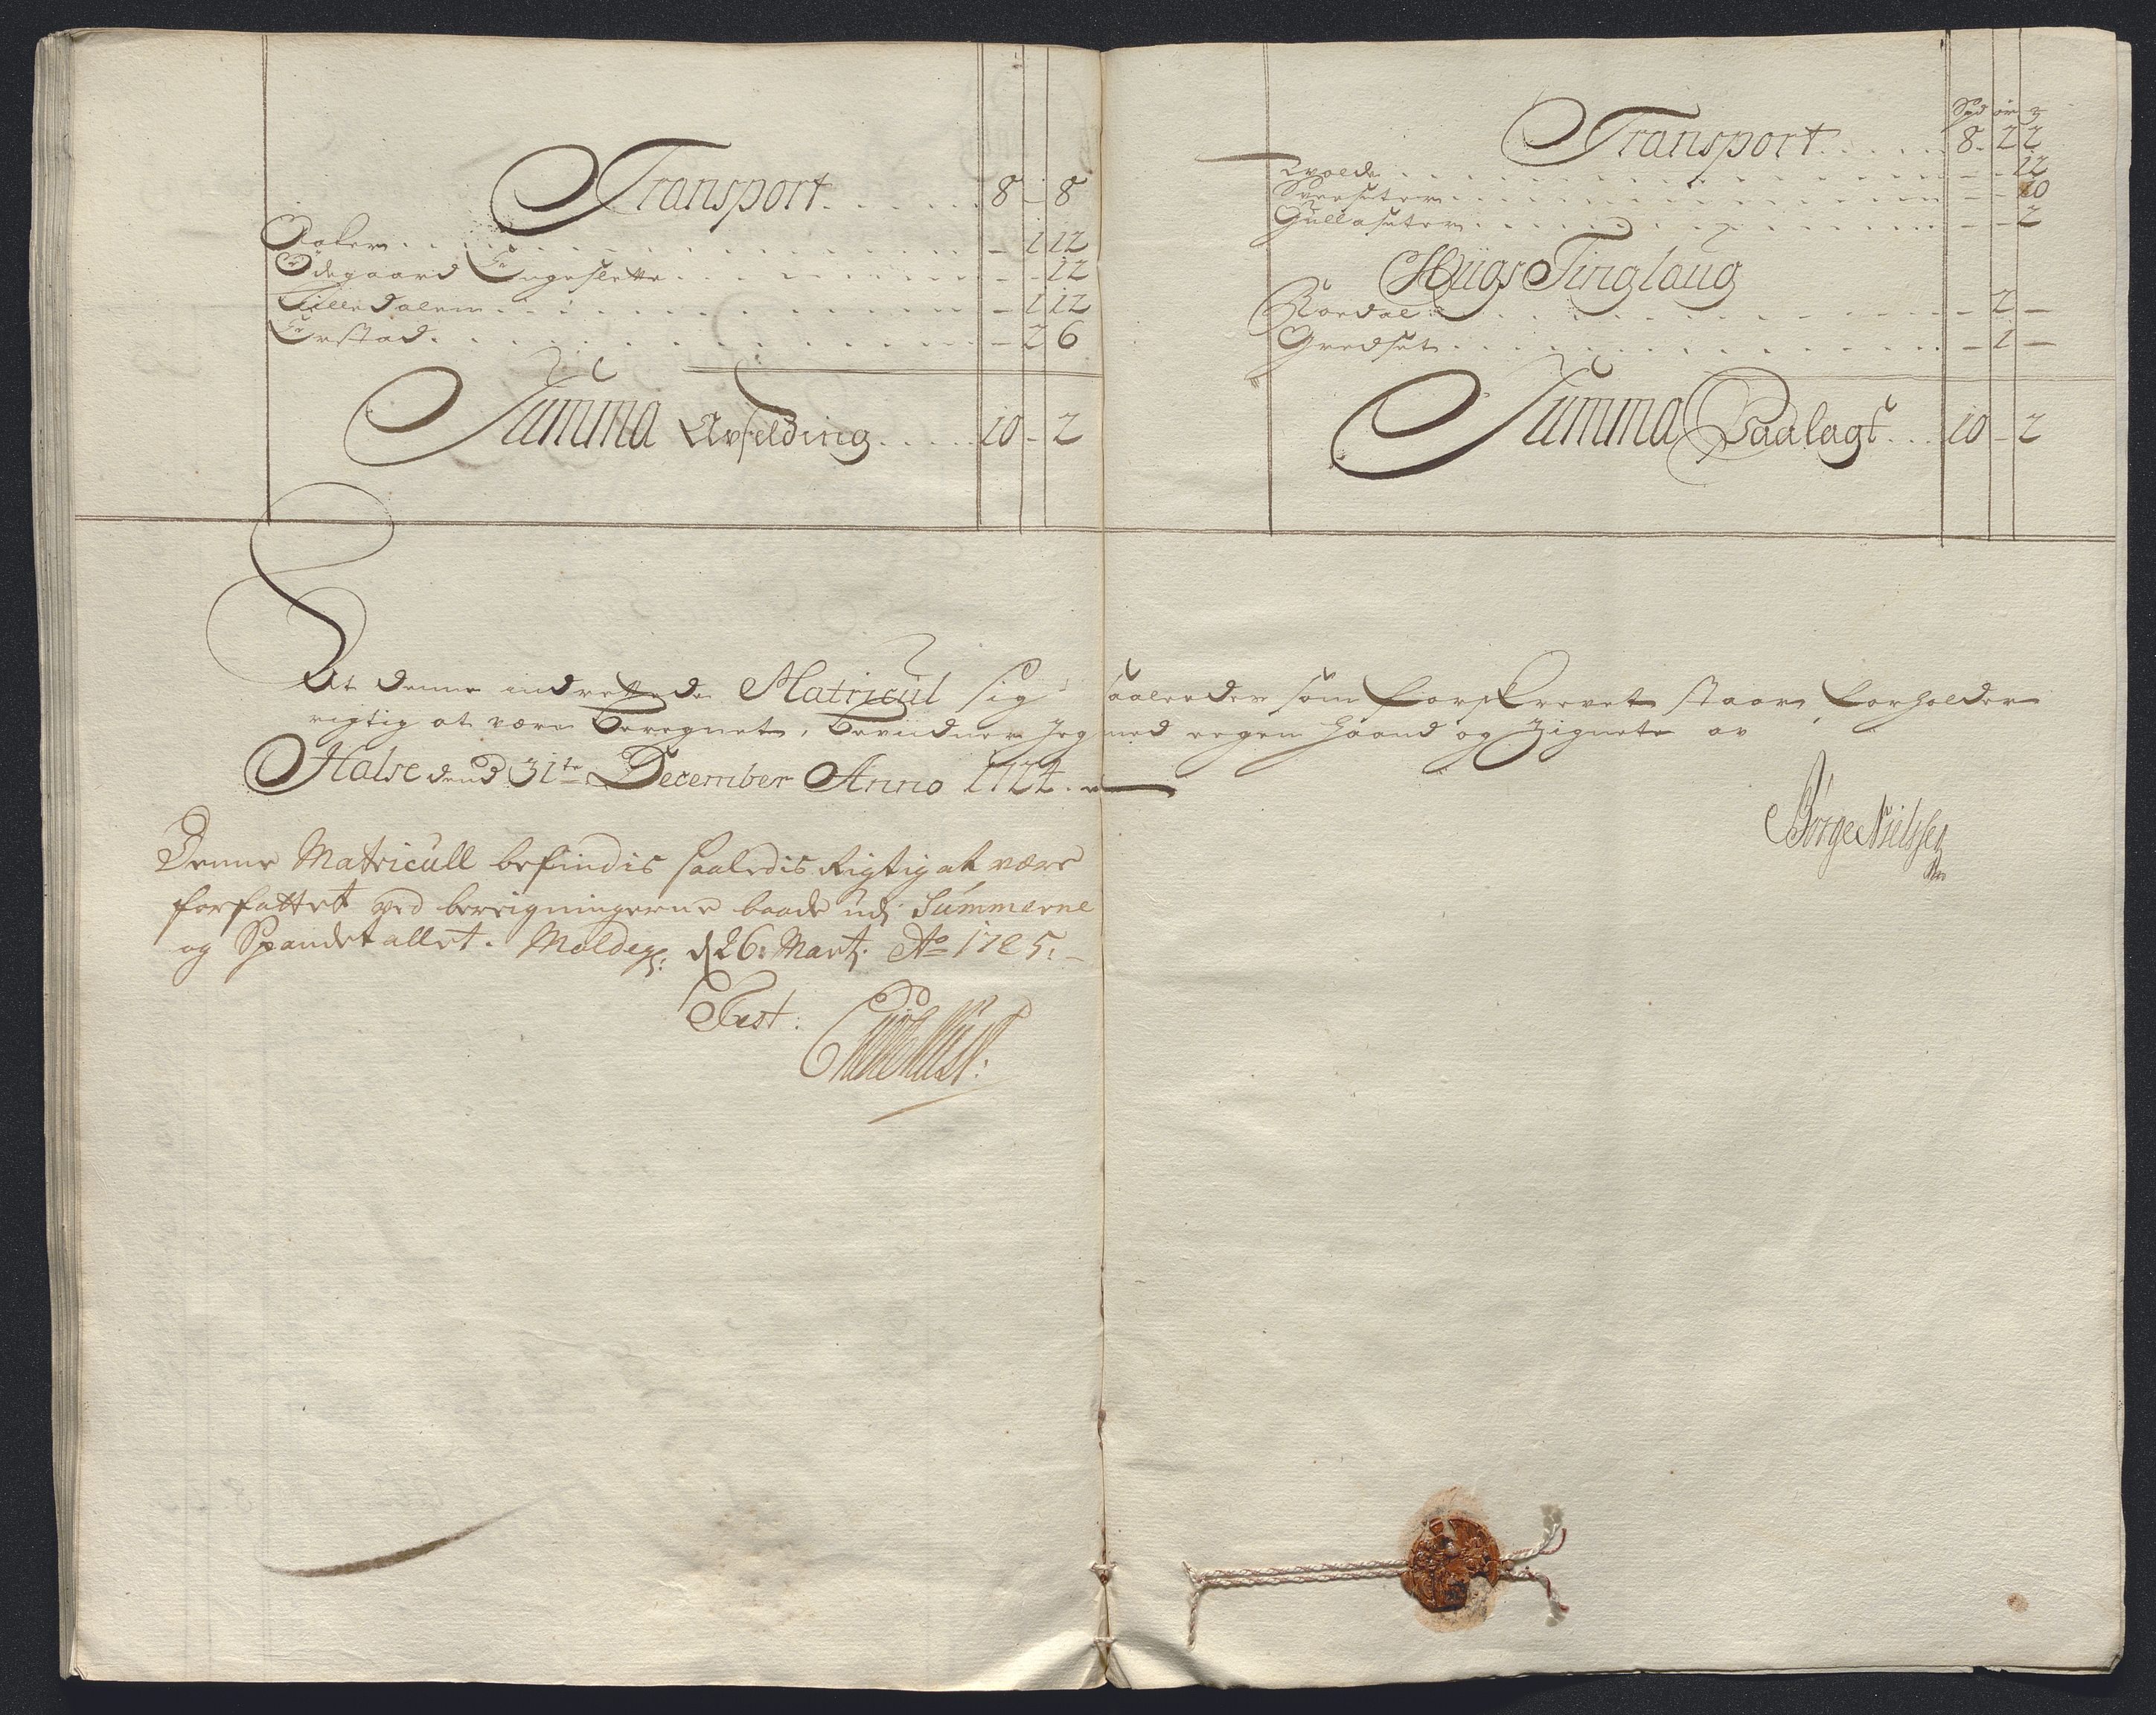 Transport . . . . . . 8 - 8
Aalen . . . - 1 12
Ödegaard Engeslette . . . - - 12
Tilledalen . . . - 1 12
Erstad . . . - 2 6
Summa Avfelding . . . . . 10 - 2
Spd ör
Transport . . . . . . 8 - 2 2
Qvolde . . . - - 12
Sversæter . . . - - 10
Gullasæter . . . - - 2
Bügs Tinglaug
Rordal . . . - 2 -
Gredset . . . - 1 -
Summa Paalagt . . . 10 - 2
At denne indrettede Matricul sig saaleedes som forskrevet staar, forholder
rigtig at være beregnet, beviidner jeg med eegen haand og Zignete av
Halse dend 31te December Anno 1724.
Börge Nielssen
Denne Matricull befindis saaledis Rigtig at være
forfattet ved bereigningerne baade udj Summerne
og Spandetallet. Moldeg: d 26: Martj: Ao 1725:
Test: